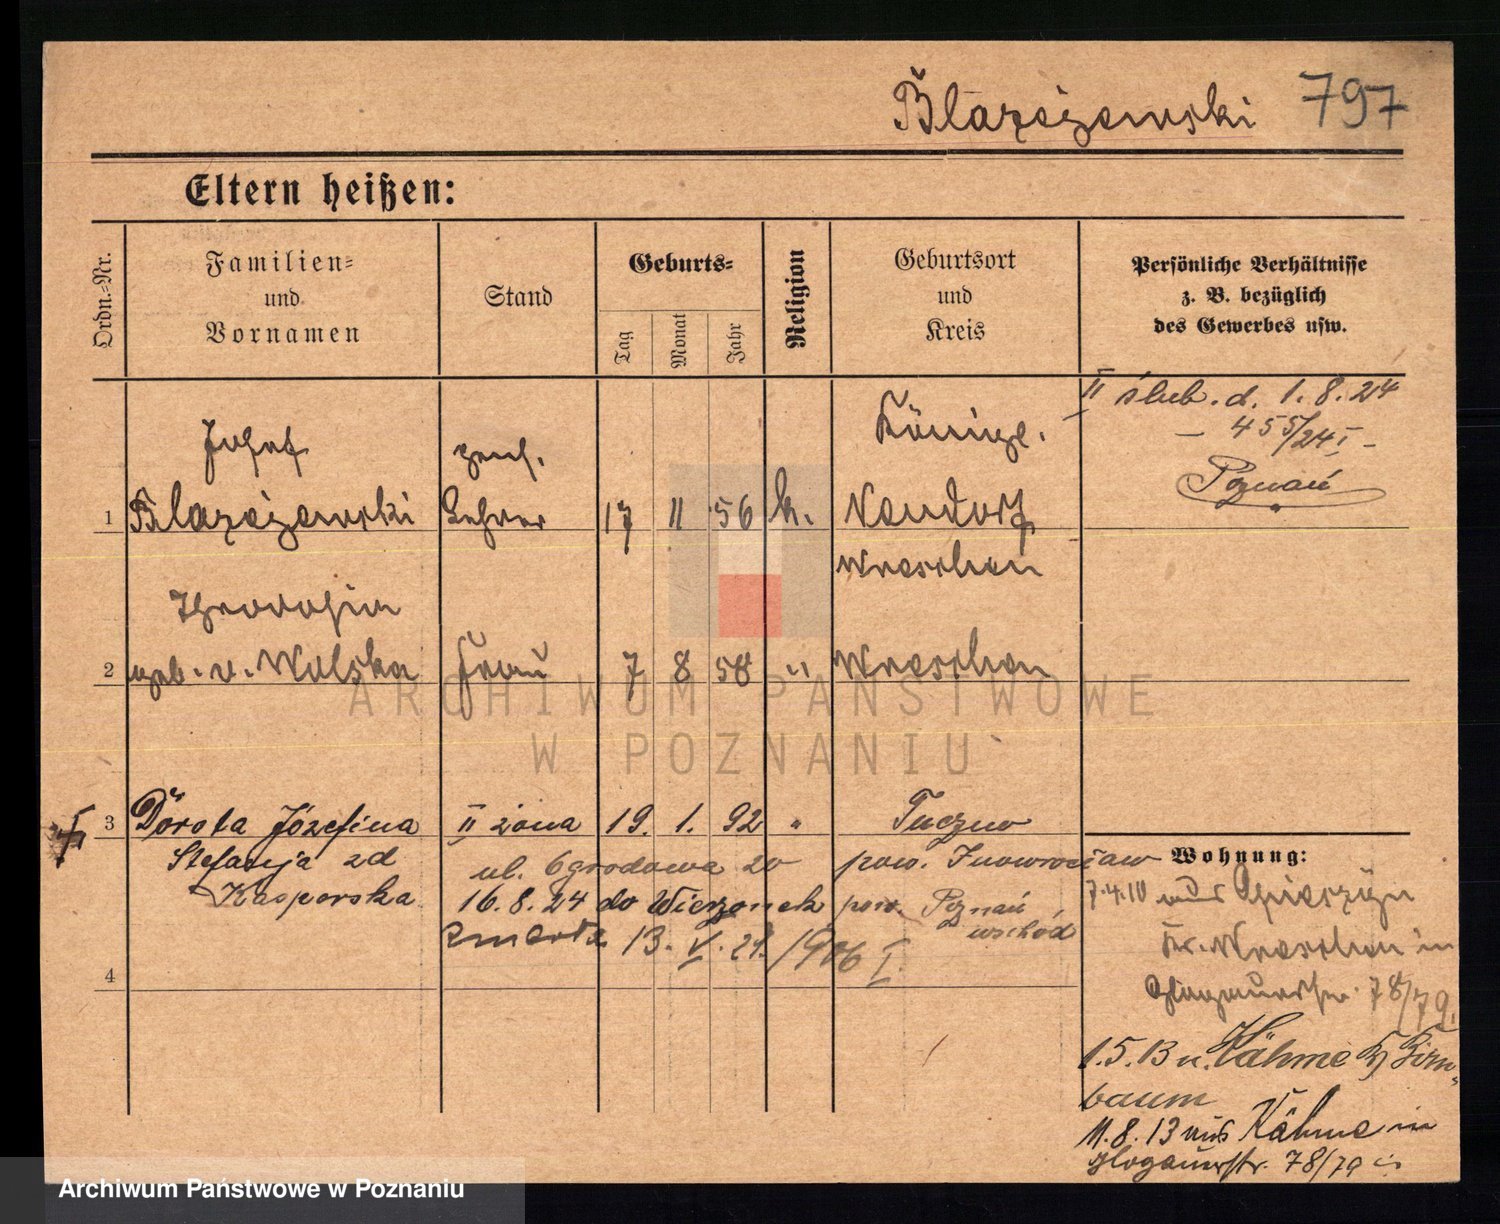 Blazejewski 797
Eltern heißen:
Ordn.-Nr.
Familien-
und
Vornamen
Stand
Geburts-
Tag
Monat
Jahr
Religion
Geburtsort
und
Kreis
Persönliche Verhältnisse
z. B. bezüglich
des Gewerbes usw.
II ślub. d. 1. 8. 24
- 455/24 I -
Poznań
Josef
pens.
1 Lehrer 17 11 56 k. Neudorf
Königl.
Wreschen
2 geb. v. Wolska Frau 7 8 58 " Wreschen
3 Dorota Józefina II żona 19. 1. 92 " Tuczno
Stefanja zd
Kasperska
ul. Ogrodowa 20 pow. Inowrocław
16. 8. 24 do Wierzonek pow. Poznań
wschód
zmarła 13. V. 29. /1906 I.
4
Wohnung:
7.4.10 aus
Kr. Wreschen in
Glogauerstr. 78/79.
1. 5. 13 n. Kähme Kr Birn-
baum
11. 8. 13 aus Kähme in
Glogauerstr. 78/79
ARCHIWUM PAŃSTWOWE
W POZNANIU
Archiwum Państwowe w Poznaniu